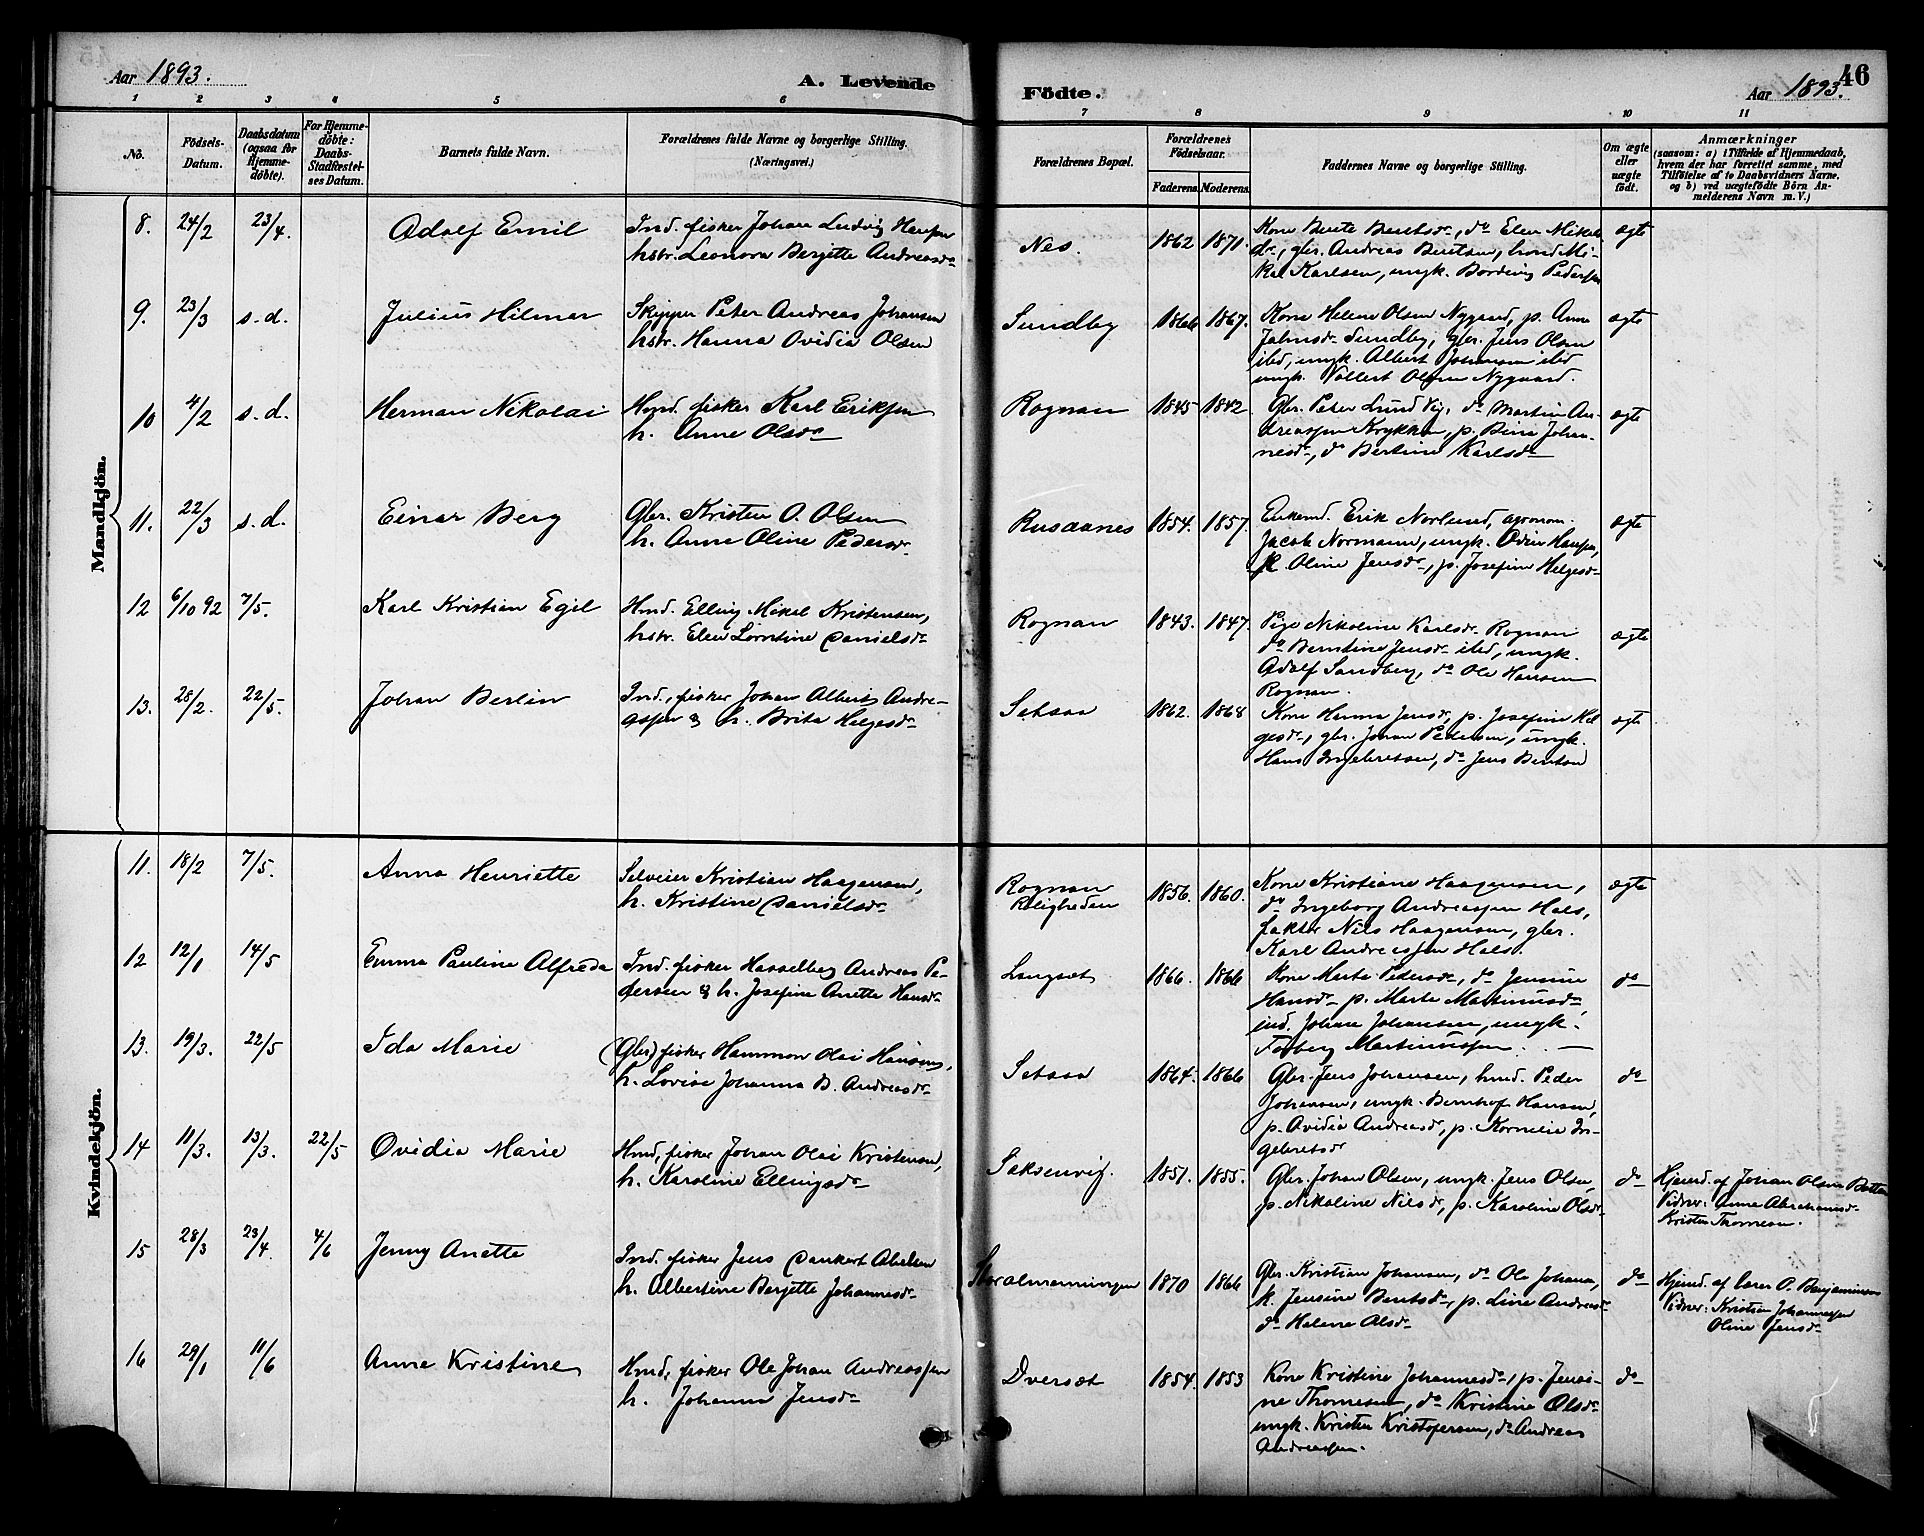 Aar 1893.
A. Levende
Födte.
Aar 1893.
46
1 2 3 4 5 6 7 8 9 10 11
No.
Födsels-
Datum.
Daabsdatum
(ogsaa for
Hjemme-
döbte).
For Hjemme-
döbte:
Daabs-
Stadfæstel-
ses Datum.
Barnets fulde Navn.
Forældrenes fulde Navne og borgerlige Stilling.
(Næringsvei.)
Forældrenes Bopæl.
Forældrenes
Födselsaar.
Faderens. Moderens.
Faddernes Navne og borgerlige Stilling.
Om ægte
eller
uægte
födt.
Anmærkninger
(saasom: a) i Tilfælde af Hjemmedaab,
hvem der har forrettet samme, med
Tilföielse af to Daabsvidners Navne,
og b) ved uægtefödte Börn An-
melderens Navn m. V.)
Mandkjön.
8. 24/2 23/4. Adolf Emil
Ind. fisker Johan Ludvig Hansen
hstr. Leonora Bergitte Andreasdr
Nes. 1862 1871.
Kone Berte Berntsdr, do Elen Mikals
dr, gbr. Andreas Berntsen, hmd Mi-
kal Karlsen, ungk. Bording Pedersen
ægte
9. 23/3 s.d. Julius Hilmar
Skipper Peter Andreas Johansen
hstr. Hanna Ovidia Olsen
Sundby 1866 1867.
Kone Helene Olsen Nygaard, p. Anne
Johnsdr Sundby, gbr. Jens Olsen
ibd, ungk. Albert Johansen ibd
ungk. Vollert Olsen Nygaard.
ægte
10 4/2 s.d. Herman Nikolai
Hmd. fisker Karl Eriksen
h. Anne Olsdr
Rognan 1845 1842
Gbr. Peter Lund Vig, do Martin An-
dreassen Krykken, p. Bina Johan-
nesdr, do Bertine Karlsdr
ægte
11. 22/3 s.d. Einar Berg
Gbr. Kristen O. Olsen
h. Anne Oline Pedersdr
Rusaanes 1854. 1857.
Enkemd. Erik Norlund, agronom
Jacob Normann, ungk. Odin Hansen,
k. Oline Jensdr, p. Josefine Helgesdr
ægte
12 6/10 92 7/5. Karl Kristian Egil
Hmd. Elling Mikal Kristensen,
hstr. Elen Lorntine Danielsdr
Rognan 1843. 1847.
Pige Nikoline Karlsdr Rognan
do Berntine Jensdr ibd, ungk.
Adolf Sandberg, do Ole Hansen
Rognan.
ægte
13. 28/2. 22/5. Johan Berlin
Ind., fisker Johan Albert Andre-
assen & h. Brita Helgesdr
Setsaa 1862. 1868
Kone Hanna Jensdr, p. Josefine Hel
gesdr, gbr. Johan Pedersen, ungk.
Hans Ingebretsen, do Jens Berntsen
ægte
Kvindekjön.
11. 18/2 7/5. Anna Henriette
Selveier Kristian Haagensen,
h. Kristine Danielsdr
Rognan
Roligheden 1856. 1860.
Kone Kristiane Haagensen,
do Ingeborg Andreassen Hals,
faktor Nils Haagensen, gbr.
Karl Andreassen Hals.
ægte
12 12/1 14/5 Emma Pauline Alfreda
Ind. fisker Hasselberg Andreas Pe-
dersen & h. Josefine Anette Hansdr
Langset 1866. 1866
Kone Marta Pedersdr, do Jensine
Hansdr p. Marte Martinusdr,
ind. Johan Johansen, ungk.
Torberg Martinussen.
do
13. 19/3. 22/5 Ida Marie
(Gbr) fisker Hammon Olai Hansen,
h. Lovise Johanna B. Andreasdr
Setsaa 1864. 1866
Gbr. Jens Johansen, hmd. Peder
Johansen, ungk. Bernhof Hansen,
p. Ovidia Andreasdr, p. Kornelie In-
gebretsdr
do
14 11/3. 13/3. 22/5 Ovidia Marie
Hmd, fisker Johan Olai Kristensen,
h. Karoline Ellingsdr
Saksenvig. 1851. 1855.
Gbr. Johan Olsen, ungk. Jens Olsen,
p. Nikoline Nilsdr, p. Karoline Olsdr
do
Hjemd. af Johan Olsen Botten
Vidner: Anne Abrahamsdr
Kristen Thomesen.
15 28/3 23/4. 4/6 Jenny Anette
Ind. fisker Jens Dankert Abelsen
h. Albertine Bergitte Johannesdr
Storalmenningen 1870 1866
Gbr. Kristian Johansen, do Ole Johans,
k. Jensine Berntsdr, p. Line Andreasdr
do Helene Olsdr
do
Hjemd. af Lars O. Benjaminsen
Vidner: Kristian Johannessen
Oline Jensdr
16 29/1 11/6 Anne Kristine
Hmd, fisker Ole Johan Andreassen
h. Johanna Jensdr
Dverset 1854. 1853
Kone Kristine Johannesdr, p. Jensi-
ne Thomesen, do Kristine Olsdr
ungk. Kristen Kristofersen, do Andreas
Andreassen.
do